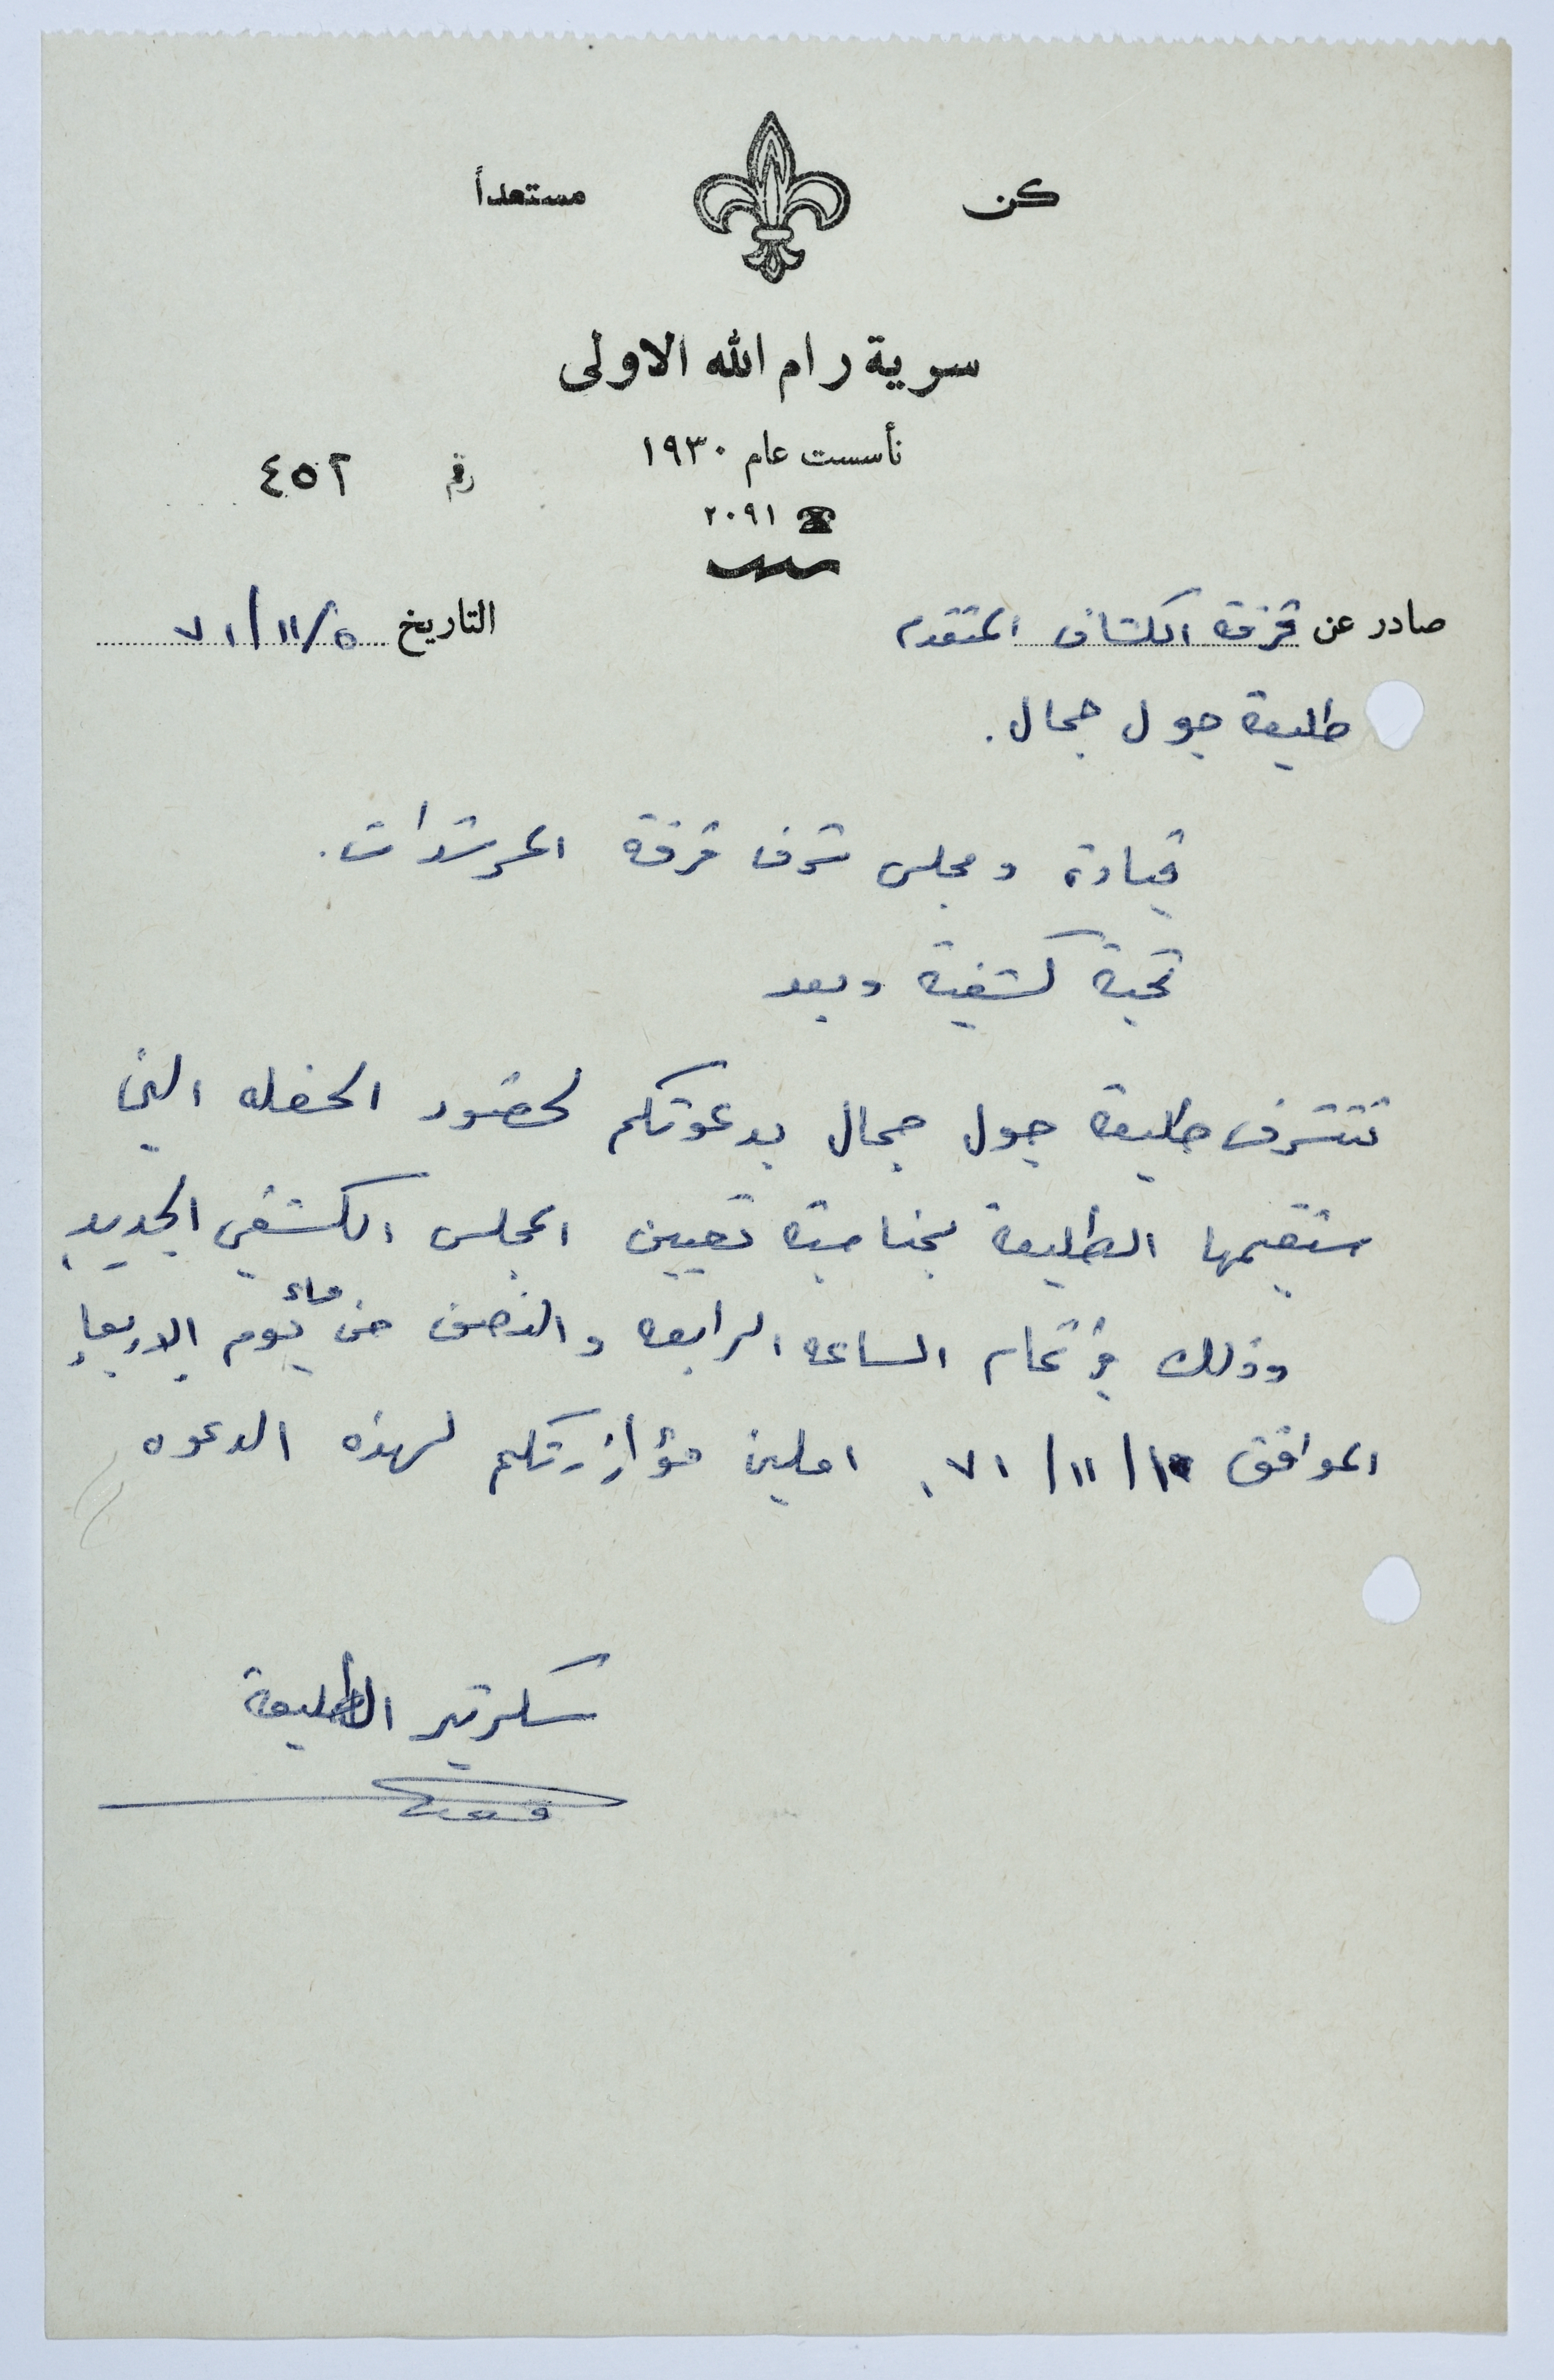 كن مستعداً
سرية رام الله الاولى
تأسست عام ١٩٣٠
رقم ٤٥٢
٢٠٩١
صادر عن فرقة الكشاف المتقدم
التاريخ ٥/١١/٧١
طليعة جول جمال.
قيادة ومجلس شرف فرقة المرشدات.
تحية كشفية وبعد
تتشرف طليعة جول جمال بدعوتكم لحضور الحفله التي
ستقيمها الطليعة بمناسبة تعيين المجلس الكشفي الجديد
وذلك في تمام الساعه الرابعه والنصف من مساء يوم الاربعاء
الموافق ١٠/١١/٧١. املين مؤازرتكم لهذه الدعوه
سكرتير الطليعة